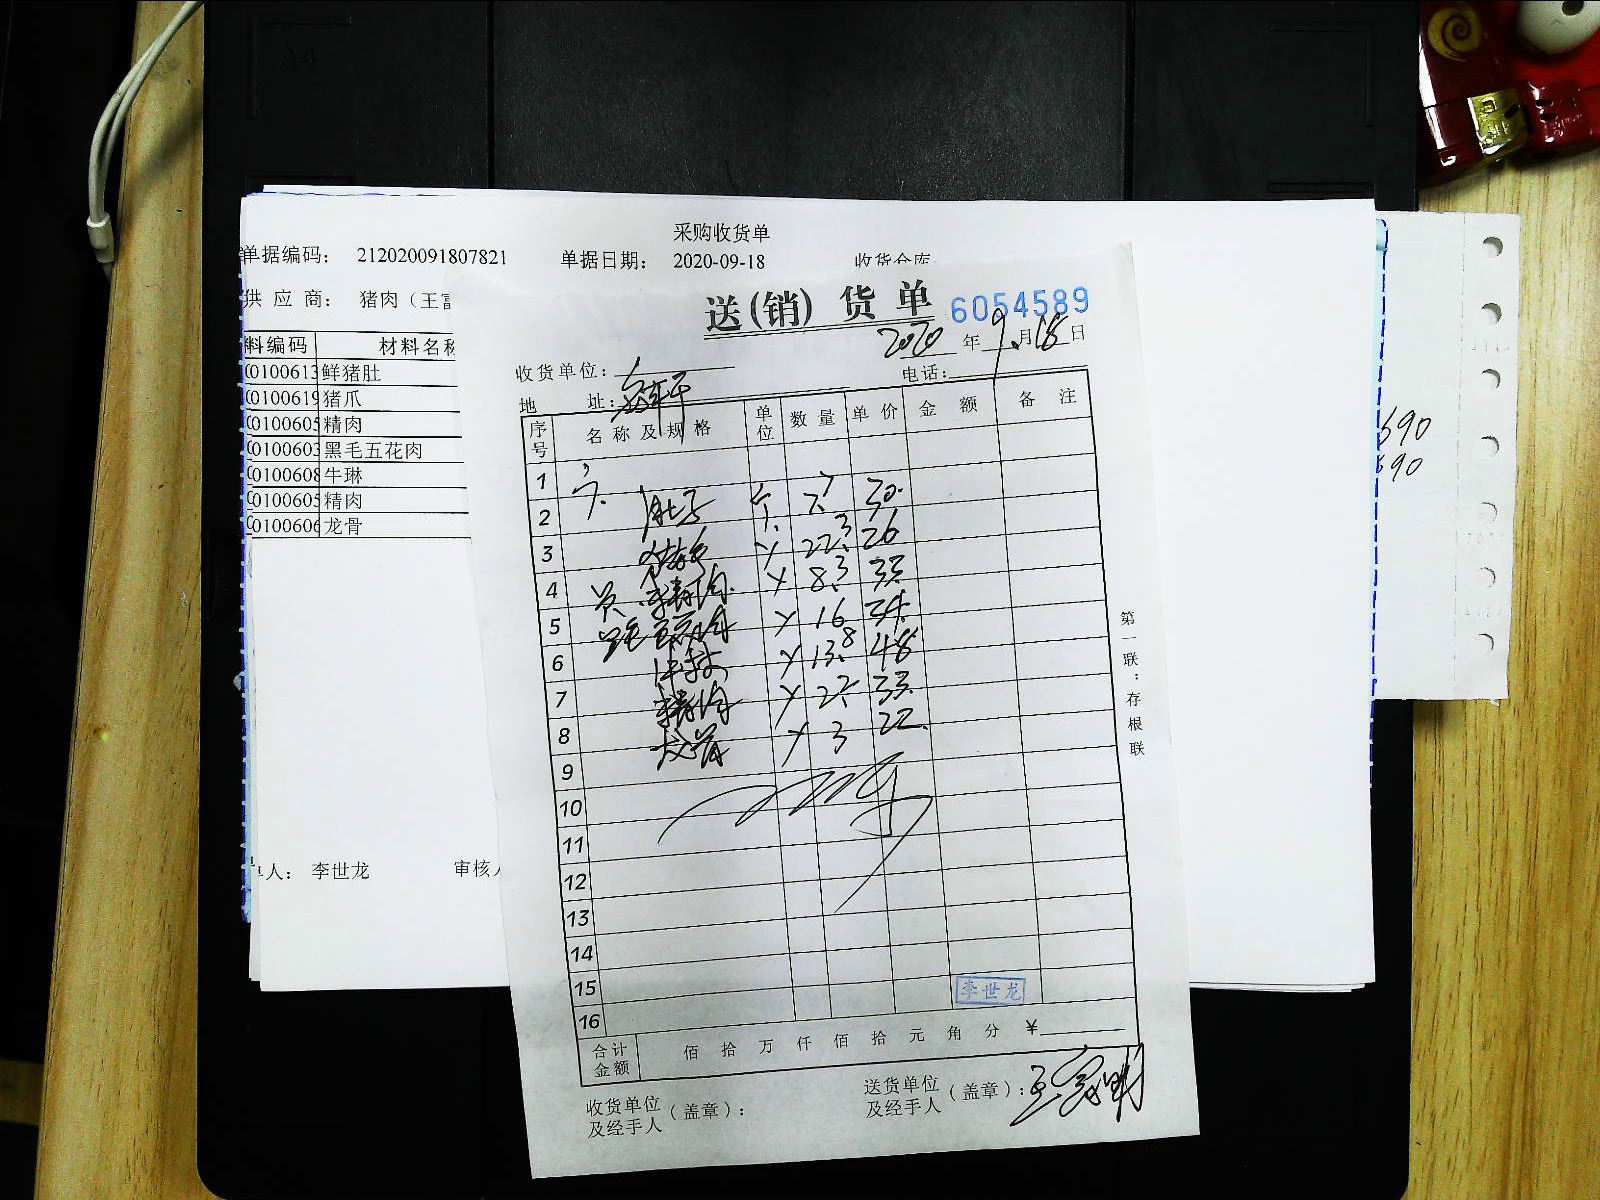 采购收货单
单据编码： 212020091807821 单据日期： 2020-09-18 收货仓库
供 应 商： 猪肉（王富
料编码 材料名称
0100613 鲜猪肚
0100619 猪爪
0100605 精肉
0100603 黑毛五花肉
0100608 牛琳
0100605 精肉
0100606 龙骨
李世龙 审核人
送(销) 货 单 6054589
2020 年 9 月 18 日
收货单位：
电话：
地 址：
序号 名 称 及 规 格 单位 数 量 单 价 金 额 备 注
1
2 肚子 个 7 30
3 22.3 26
4 精肉 8.3 33
5 16 34
6 13.8 48
7 精肉 22 33
8 龙骨 3 22
9
10
11
12
13
14
15 李世龙
16
合计金额 佰 拾 万 仟 佰 拾 元 角 分 ￥
收货单位及经手人（盖章）：
送货单位及经手人（盖章）：王富明
第一联：存根联
690
690